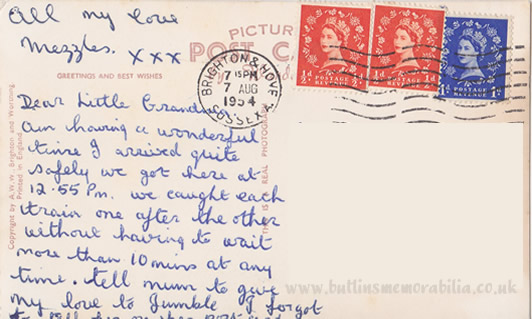 All my love
Mezzles. xxx
PICTURE
POST CARD
GREETINGS AND BEST WISHES
BRIGHTON & HOVE
7 15 PM
7 AUG
1954
SUSSEX
½d POSTAGE REVENUE ½d
½d POSTAGE REVENUE ½d
1d POSTAGE REVENUE 1d
Dear Little Grandma
Am having a wonderful
time I arrived quite
safely we got here at
12.55 Pm. we caught each
train one after the other
without having to wait
more than 10 mins at any
time. tell mum to give
my love to Jumble I forgot
to tell her
Copyright by A.W.W. Brighton and Worthing
Printed in England
THIS IS A REAL PHOTOGRAPH
www.butlinsmemorabilia.co.uk